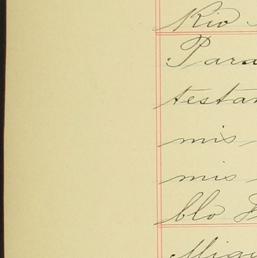 Rio
Para
testa
mis
mis
blo
Migu